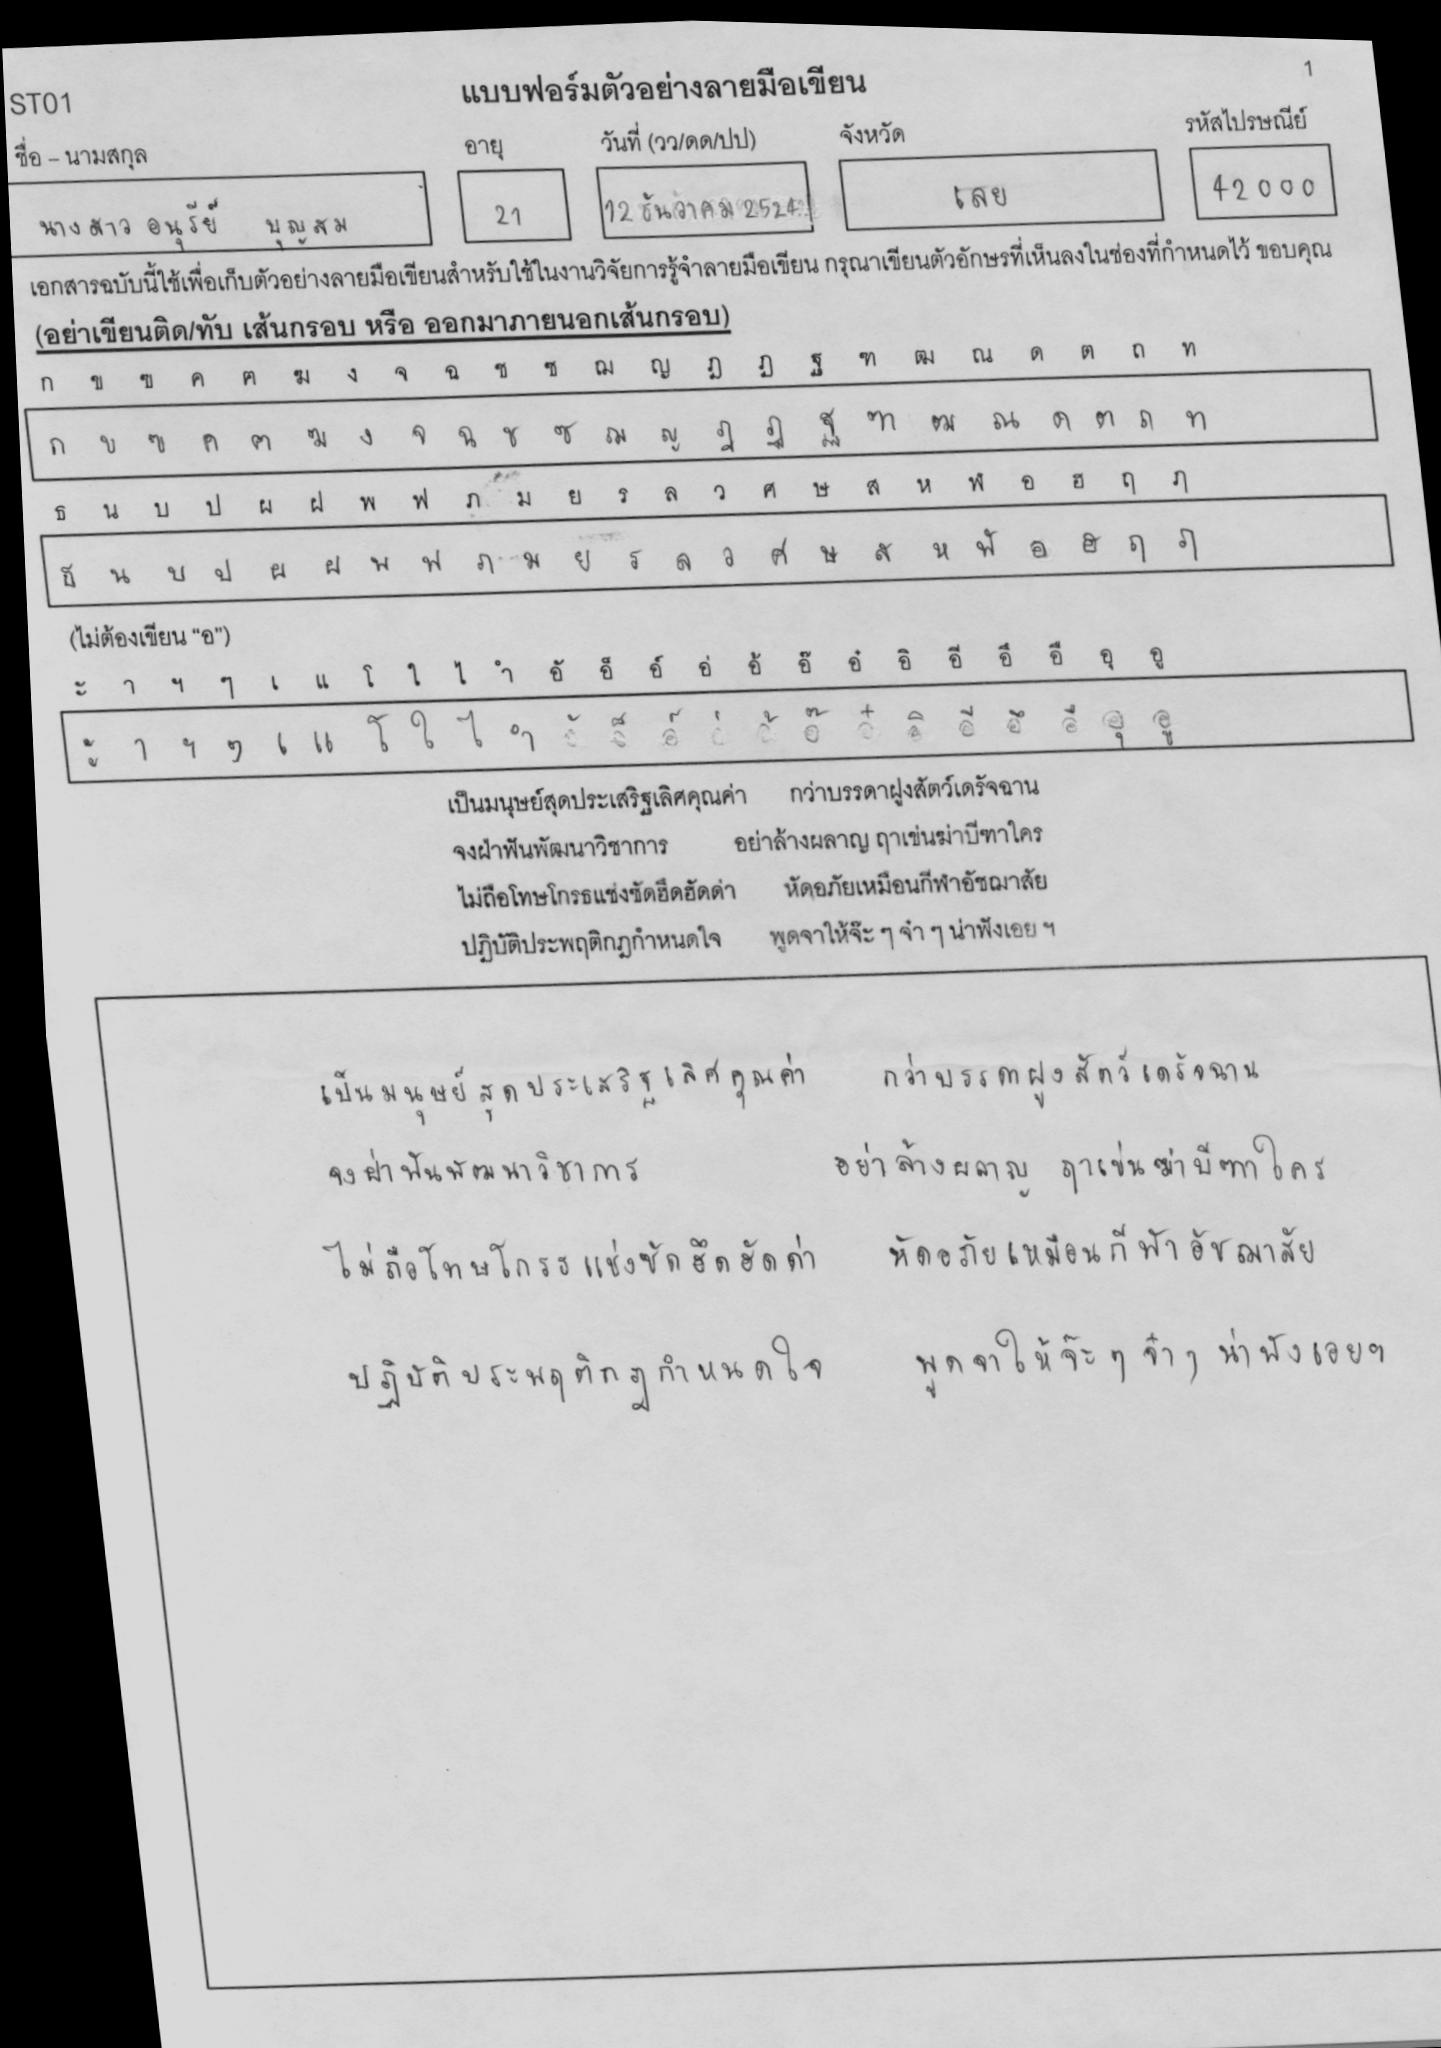 1
ST01
แบบฟอร์มตัวอย่างลายมือเขียน
ชื่อ – นามสกุล อายุ วันที่ (วว/ดด/ปป) จังหวัด รหัสไปรษณีย์
นางสาว อนุรีย์ บุญสม 21 12 ธันวาคม 2524 เลย 42000
เอกสารฉบับนี้ใช้เพื่อเก็บตัวอย่างลายมือเขียนสำหรับใช้ในงานวิจัยการรู้จำลายมือเขียน กรุณาเขียนตัวอักษรที่เห็นลงในช่องที่กำหนดไว้ ขอบคุณ
(อย่าเขียนติด/ทับ เส้นกรอบ หรือ ออกมาภายนอกเส้นกรอบ)
ก ข ฃ ค ฅ ฆ ง จ ฉ ช ซ ฌ ญ ฎ ฏ ฐ ฑ ฒ ณ ด ต ถ ท
ก ข ฃ ค ฅ ฆ ง จ ฉ ช ซ ฌ ญ ฎ ฏ ฐ ฑ ฒ ณ ด ต ถ ท
ธ น บ ป ผ ฝ พ ฟ ภ ม ย ร ล ว ศ ษ ส ห ฬ อ ฮ ฤ ฦ
ธ น บ ป ผ ฝ พ ฟ ภ ม ย ร ล ว ศ ษ ส ห ฬ อ ฮ ฤ ฦ
(ไม่ต้องเขียน “อ”)
ะ า ฯ ๆ เ แ โ ใ ไ ำ อั อ็ อ์ อ่ อ้ อ๊ อ๋ อิ อี อึ อื อุ อู
ะ า ฯ ๆ เ แ โ ใ ไ ำ อั อ็ อ์ อ่ อ้ อ๊ อ๋ อิ อี อึ อื อุ อู
เป็นมนุษย์สุดประเสริฐเลิศคุณค่า กว่าบรรดาฝูงสัตว์เดรัจฉาน
จงฝ่าฟันพัฒนาวิชาการ อย่าล้างผลาญ ฤาเข่นฆ่าบีฑาใคร
ไม่ถือโทษโกรธแช่งซัดฮึดฮัดด่า หัดอภัยเหมือนกีฬาอัชฌาสัย
ปฏิบัติประพฤติกฎกำหนดใจ พูดจาให้จ๊ะ ๆ จ๋า ๆ น่าฟังเอย ฯ
เป็นมนุษย์สุดประเสริฐเลิศคุณค่า กว่าบรรดาฝูงสัตว์เดรัจฉาน
จงฝ่าฟันพัฒนาวิชาการ อย่าล้างผลาญ ฤาเข่นฆ่าบีฑาใคร
ไม่ถือโทษโกรธแช่งซัดฮึดฮัดด่า หัดอภัยเหมือนกีฬาอัชฌาสัย
ปฏิบัติประพฤติกฎกำหนดใจ พูดจาให้จ๊ะๆ จ๋าๆ น่าฟังเอยฯ